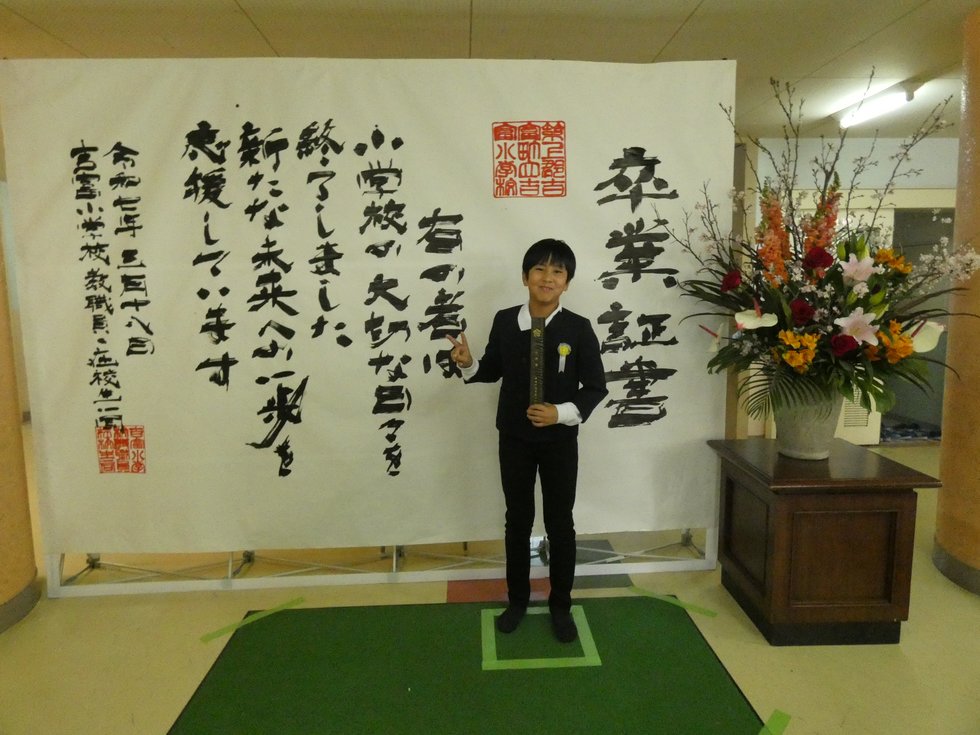 卒業証書
右の者は
小学校の大切な日々を
終了しました
新たな未来への一歩を
応援しています
令和七年三月十八日
吉富小学校教職員・在校生一同